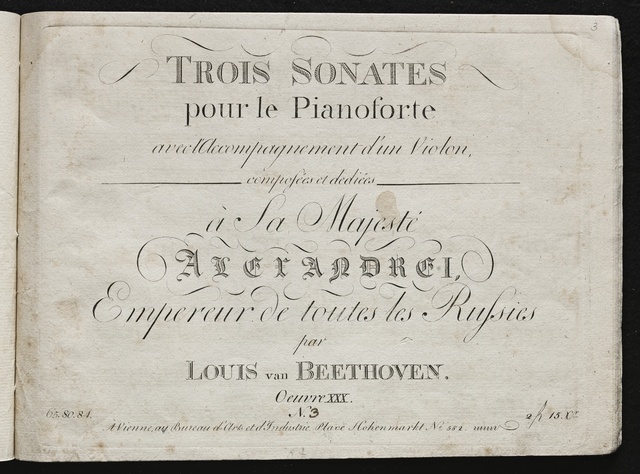 3
TROIS SONATES
pour le Pianoforte
avec l'Accompagnement d'un Violon,
composées et dediées
à Sa Majesté
ALEXANDRE I,
Empereur de toutes les Russies
par
LOUIS van BEETHOVEN.
Oeuvre XXX.
N.º 3
65.80.84.
A Vienne, au Bureau d'Arts et d'Industrie Place Hohenmarkt Nº 582
2 f 15. Xr